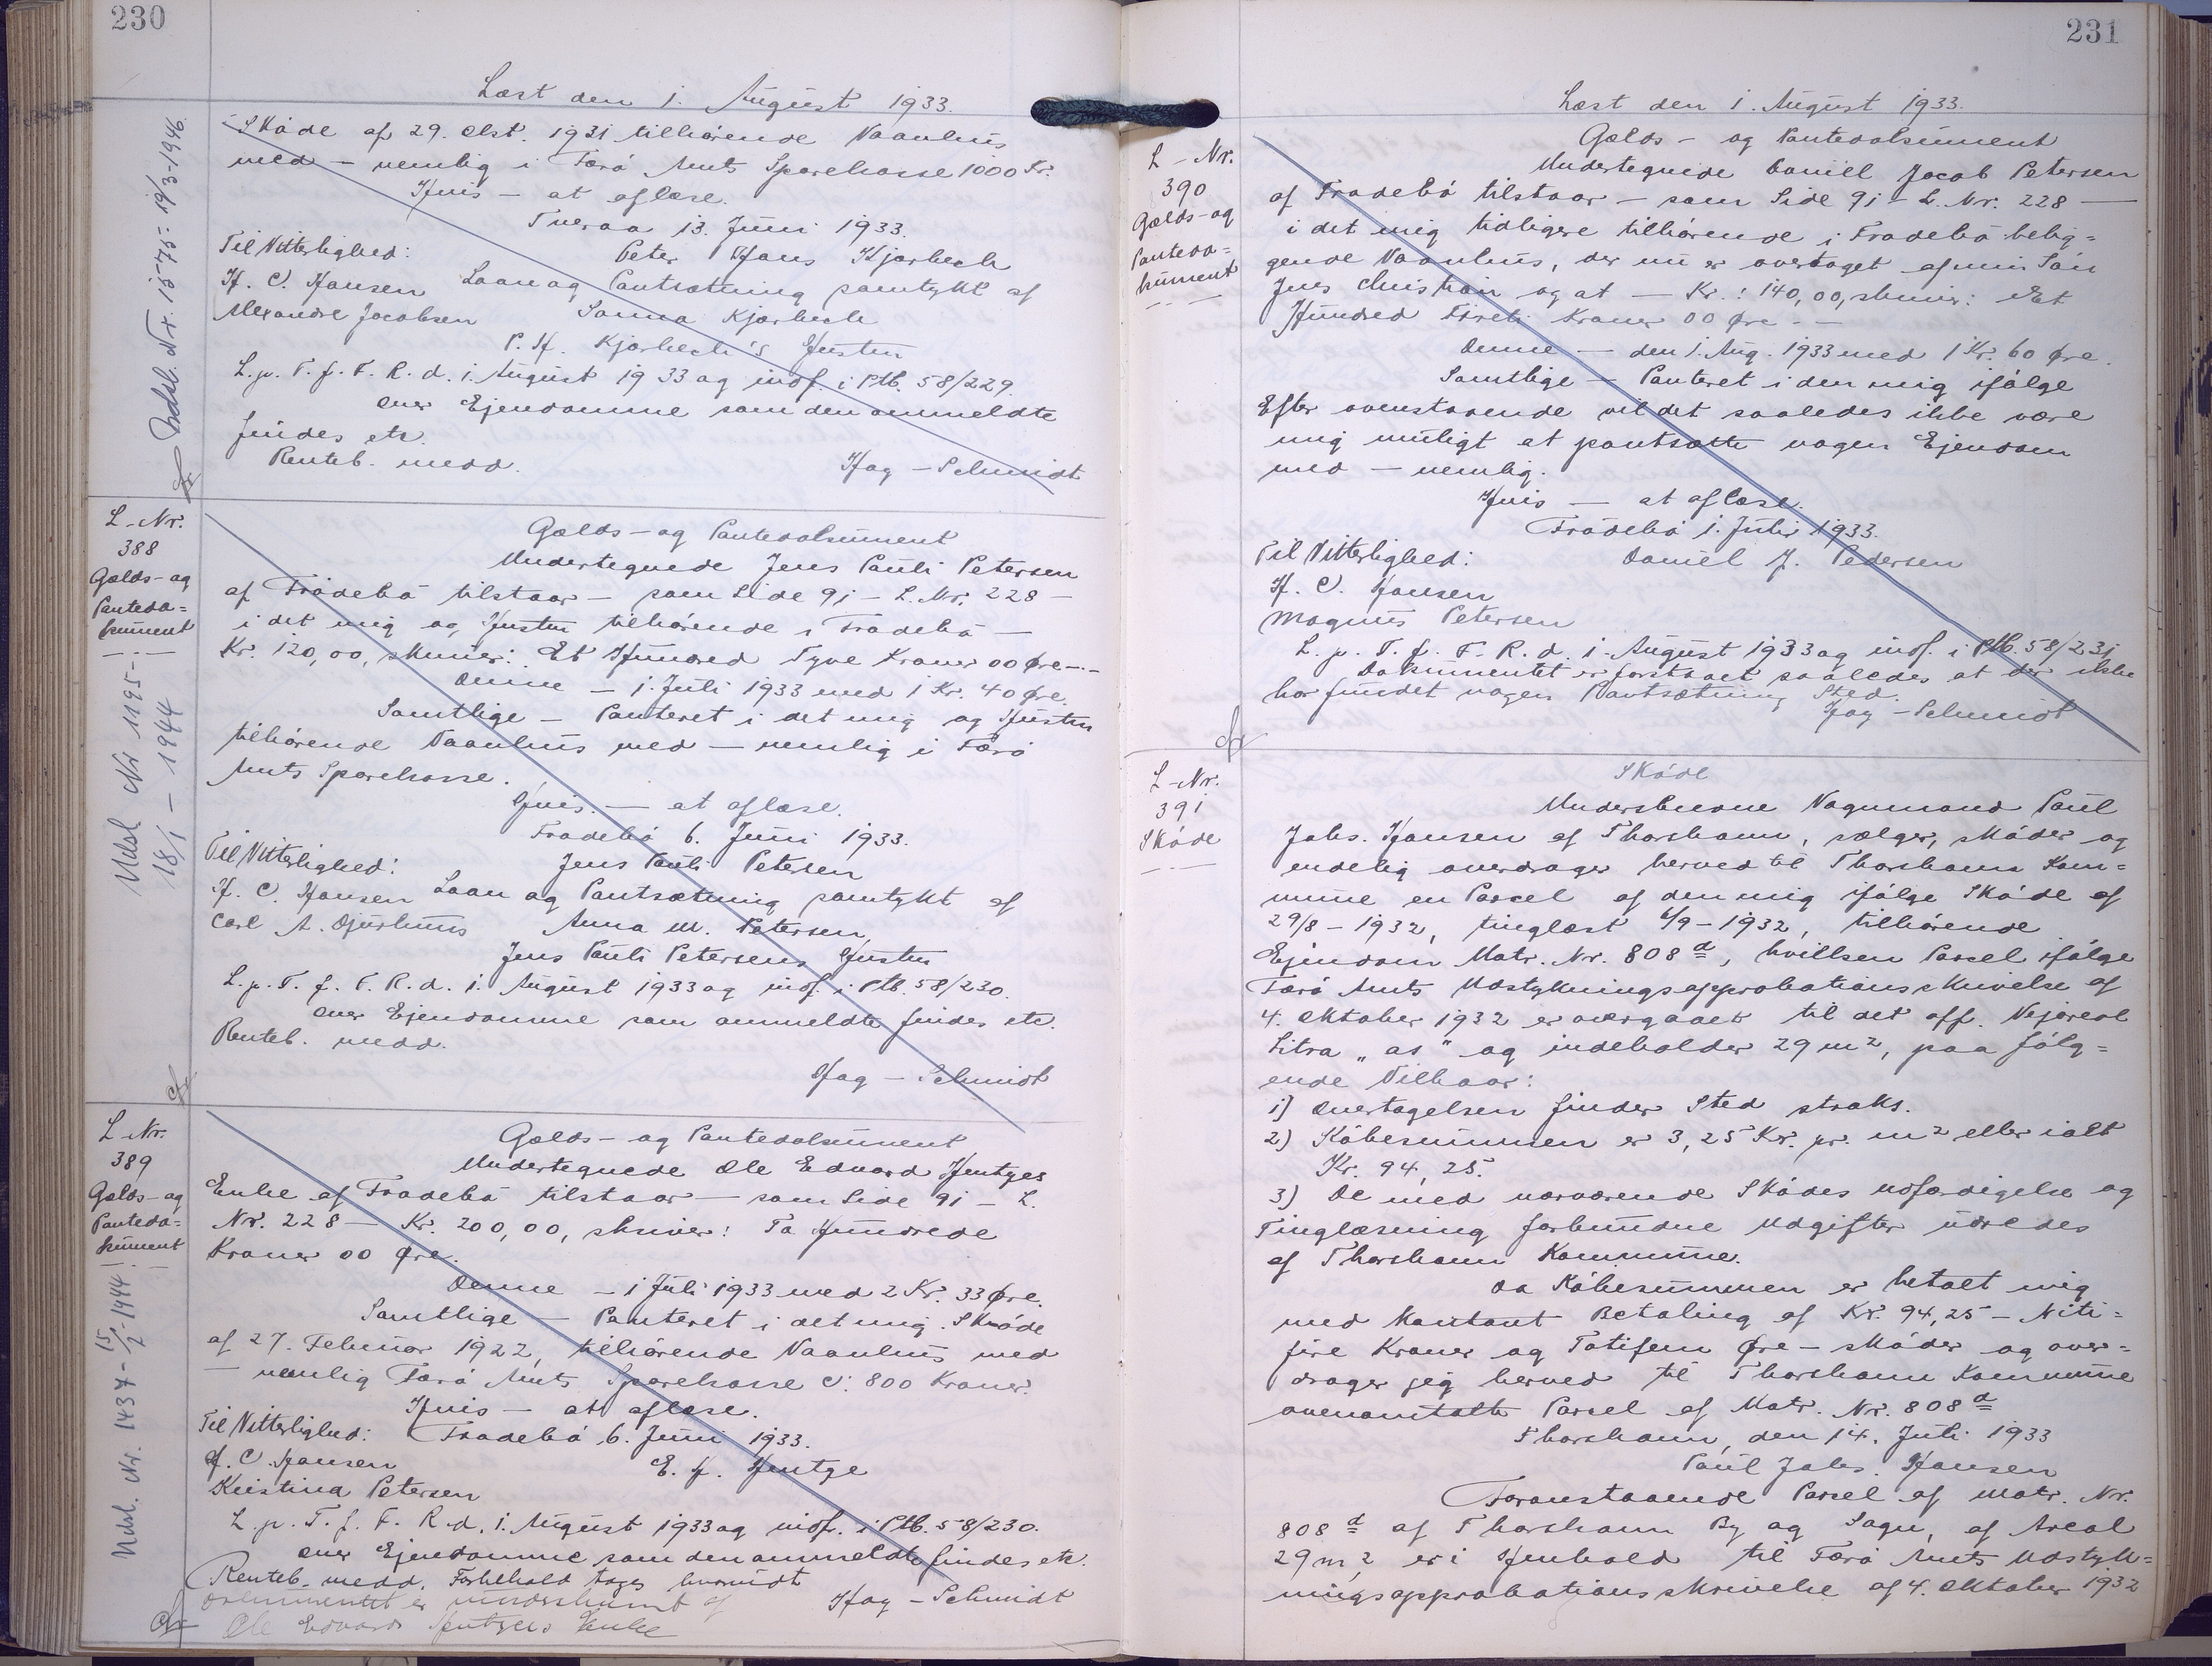 230
Læst den 1. August 1933.
Skøde af 29. Okt. 1931 tilhørende Vaanhus
med — nemlig i Færø Amts Sparekasse 1000 Kr.
Hvis — at aflæse.
Tveraa 13. Juni 1933.
Til Vitterlighed:
Peter Hans Kjærbech
H. C. Hansen
Laan og Pantsætning samtykt af
Alexandre Jacobsen
Sanna Kjærbech
P. H. Kjærbech's Hustru
L. p. T. f. F. R. d. 1. August 1933 og indf. i Ptb. 58/229.
over Ejendomme som den anmeldte
findes etc.
Renteb. medd.
Hag — Schmidt
Udsl. Nr. 1575 - 19/3-1946.
L-Nr.
388
Gælds- og
Pantedo=
kument
Udsl Nr 1195 -
18/1 - 1944
Gælds- og Pantedokument
Undertegnede Jens Pauli Petersen
af Frodebø tilstaar — som Side 91 - L. Nr. 228 —
i det mig og Hustru tilhørende i Frodebø —
Kr. 120,00, skriver: Et Hundred Tyve Kroner 00 Øre —
Denne — 1. Juli 1933 med 1 Kr. 40 Øre.
Samtlige — Panteret i det mig og Hustru
tilhørende Vaanhus med — nemlig i Færø
Amts Sparekasse.
Hvis — at aflæse.
Frodebø 6. Juni 1933.
Til Vitterlighed:
Jens Pauli Petersen
H. C. Hansen
Laan og Pantsætning samtykt af
Carl A. Djurhuus
Anna M. Petersen
Jens Pauli Petersens Hustru
L. p. T. f. F. R. d. 1. August 1933 og indf. i Ptb. 58/230.
over Ejendomme som anmeldte findes etc.
Renteb. medd.
Hag — Schmidt
L-Nr.
389
Gælds- og
Pantedo=
kument
Udsl. Nr. 1437 - 15/2-1944
Gælds- og Pantedokument
Undertegnede Ole Edvard Hentzes
Enke af Frodebø tilstaar — som Side 91 - L.
Nr. 228 — Kr. 200,00, skriver: To Hundrede
Kroner 00 Øre.
Denne — 1 Juli 1933 med 2 Kr. 33 Øre.
Samtlige — Panteret i det mig. Skøde
af 27. Februar 1922, tilhørende Vaanhus med
— nemlig Færø Amts Sparekasse 800 Kroner.
Hvis — at aflæse.
Til Vitterlighed:
Frodebø 6. Juni 1933.
H. C. Hansen
E. H. Hentze
Kristina Petersen
L. p. T. f. F. R. d. 1. August 1933 og indf. i Ptb. 58/230.
over Ejendomme som den anmeldte findes etc.
Renteb. medd. Forbehold tages hvorvidt
Dokumentet er underskrevet af
Hag — Schmidt
Ole Edvard Hentzes Enke
231
Læst den 1. August 1933.
L-Nr.
390
Gælds- og
Pantedo=
kument
Gælds- og Pantedokument
Undertegnede Daniel Jacob Petersen
af Frodebø tilstaar — som Side 91 - L. Nr. 228 —
i det mig tidligere tilhørende i Frodebø belig=
gende Vaanhus, der nu er overtaget af min Søn
Jens Christian og at — Kr.: 140,00, skriver: Et
Hundred Fireti Kroner 00 Øre. —
Denne — den 1. Aug. 1933 med 1 Kr. 60 Øre.
Samtlige — Panteret i den mig ifølge
Efter ovenstaaende vil det saaledes ikke være
mig muligt at pantsætte nogen Ejendom
med — nemlig.
Hvis — at aflæse.
Frodebø 1. Juli 1933.
Til Vitterlighed:
Daniel J. Pedersen
H. C. Hansen
Magnus Petersen
L. p. T. f. F. R. d. 1. August 1933 og indf. i Ptb. 58/231
Dokumentet er forstaaet saaledes at der ikke
har fundet nogen Pantsætning Sted.
Hag — Schmidt
L-Nr.
391
Skøde
Skøde
Underskrevne Vognmand Paul
Johs. Hansen af Thorshavn, sælger, skøder og
endelig overdrager herved til Thorshavns Kom=
mune en Parcel af den mig ifølge Skøde af
29/8 - 1932, tinglæst 6/9 - 1932, tilhørende
Ejendom Matr. Nr. 808 d, hvilken Parcel ifølge
Færø Amts Udstykningsapprobationsskrivelse af
4. Oktober 1932 er overgaaet til det off. Vejareal
Litra „as" og indeholder 29 m2, paa følg=
ende Vilkaar:
1) Overtagelsen finder Sted straks.
2) Købesummen er 3,25 Kr. pr. m2 eller ialt
Kr. 94,25.
3) De med nærværende Skødes Udfærdigelse og
Tinglæsning forbundne Udgifter udredes
af Thorshavn Kommune.
Da Købesummen er betalt mig
med kontant Betaling af Kr. 94,25 — Niti=
fire Kroner og Totifem Øre — skøder og over=
drager jeg herved til Thorshavn Kommune
ovenomtalte Parcel af Matr. Nr. 808 d
Thorshavn, den 14. Juli 1933
Paul Johs. Hansen
Foranstaaende Parcel af Matr. Nr.
808 d af Thorshavn By og Sogn, af Areal
29 m2, er i Henhold til Færø Amts Udstyk=
ningsapprobationsskrivelse af 4. Oktober 1932